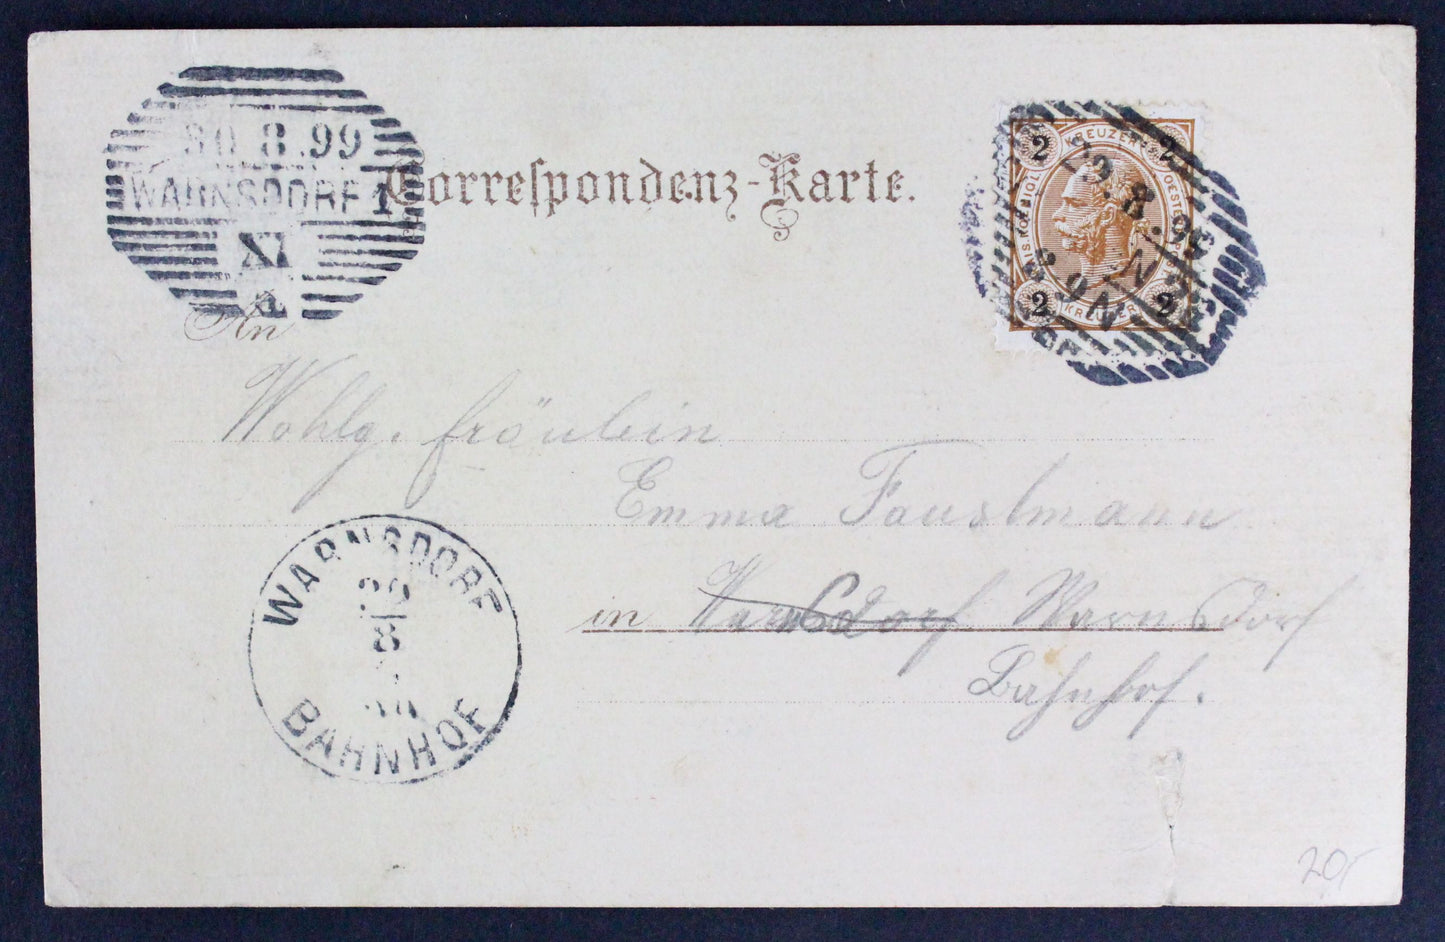 30.8.99
WARNSDORF 1
XI
Correſpondenz-Karte.
2 KREUZER 2
2 KREUZER 2
8.99
An
Wohlg. Fräulein
Emma Faustmann
in Warnsdorf Warnsdorf
Bahnhof.
WARNSDORF
8
BAHNHOF
20,-